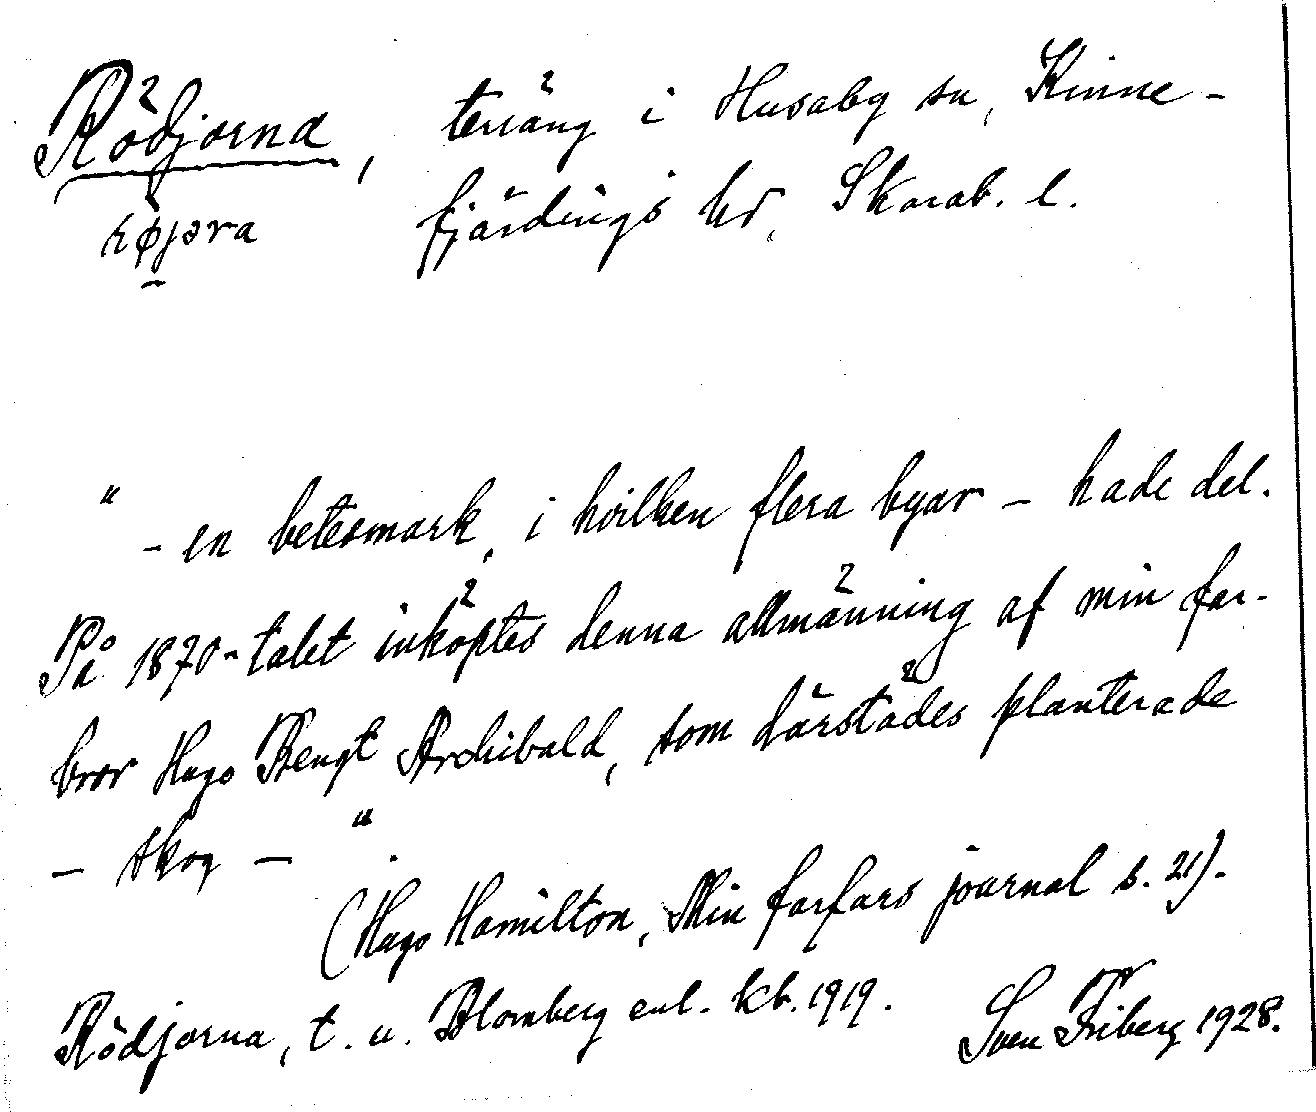 Rödjorna, terräng i Husaby sn, Kinne-
røjəra fjärdings hd, Skarab. l.
"- en betesmark, i hvilken flera byar – hade del.
På 1870-talet inköptes denna allmänning af min far-
bror Hugo Bengt Archibald, som därstädes planterade
– skog – ".
(Hugo Hamilton, Min farfars journal s. 21).
Rödjorna, t. u. Blomberg enl. kb. 1919.
Sven Friberg 1928.